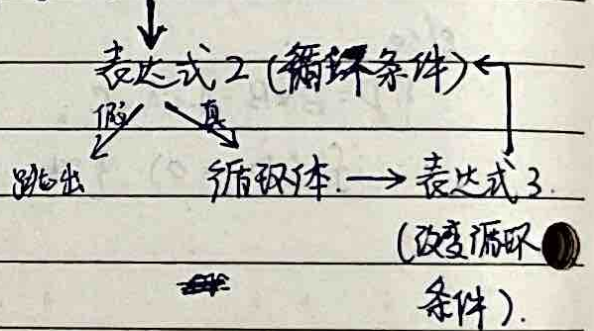 表达式2(循环条件)
假 真
跳出 循环体. → 表达式3.
(改变循环
条件).